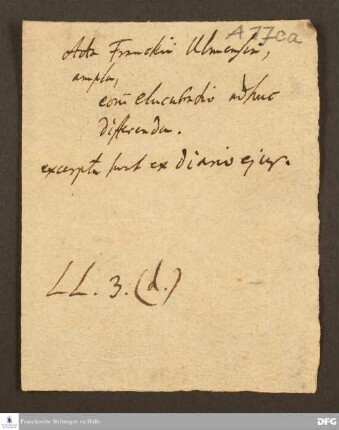 A 77ca
Acta Franckii Ulmensia,
ampla,
eorũ elucubratio adhuc
differenda.
excerpta sunt ex diario ejus.
LL. 3. (d.)
Franckesche Stiftungen zu Halle
DFG